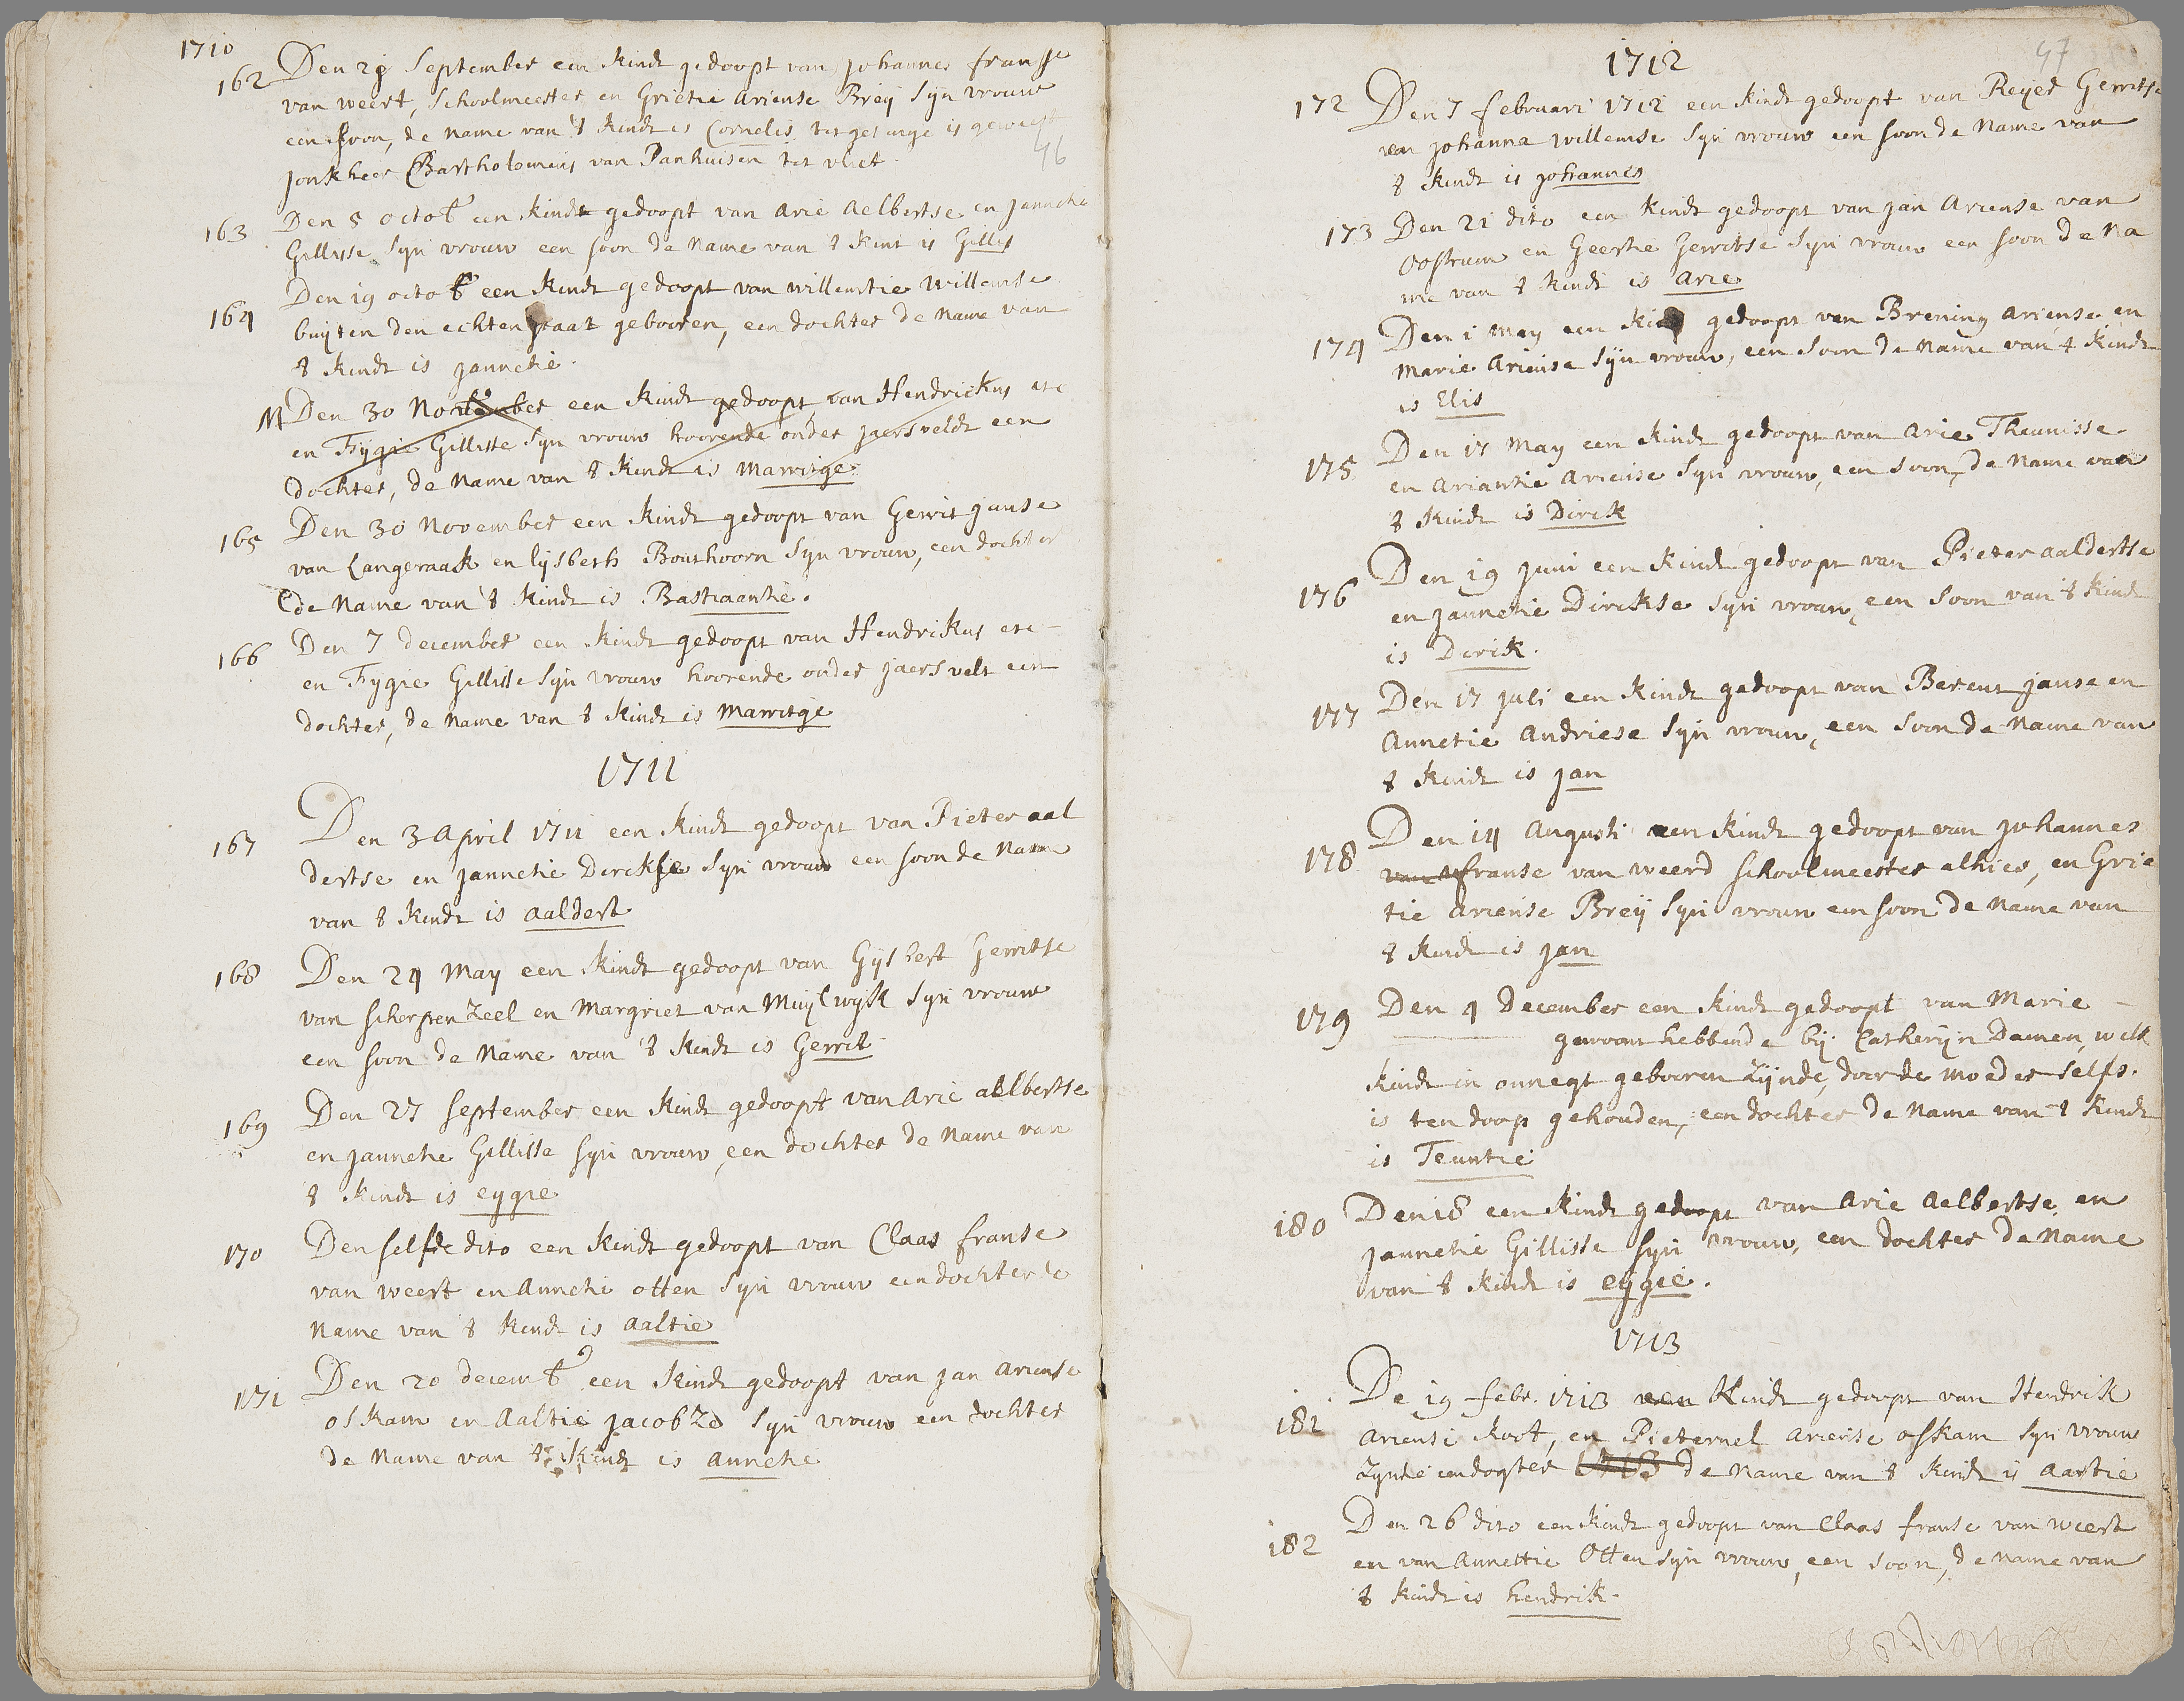 1710
162 Den 28 September een kindt gedoopt van Johannes franse
van weert, Schoolmeester en Grietie Ariense Breij Syn vrouw
een soon, de name van 't kindt is Cornelis. tot getuige is geweest
46
Jonkheer Bartholomeus van Panhuisen tot vliet.
163 Den 5 octob een kindt gedoopt van Arie Aelbertse en Jannetie
Gillisse Syn vrouw een soon de name van 't kint is Gillis
164 Den 19 octob een kindt gedoopt van willemtie willemse
buijten den echten staat gebooren, een dochter de name van
't kindt is Jannetie.
M Den 30 November een kindt gedoopt van Hendrickus etc
en Fygie Gillisse Syn vrouw hoorende onder Jaersveldt een
dochter, de name van 't kindt is Marritge.
165 Den 30 November een kindt gedoopt van Gerrit Janse
van Langeraak en lijsbeth Bouthoorn Syn vrouw, een dochter
de name van 't kindt is Bastiaantie.
166 Den 7 december een kindt gedoopt van Hendrikus etc
en Fygie Gillisse Syn vrouw hoorende onder Jaersvelt een
dochter, de name van 't kindt is Marritge
1711
167 Den 3 April 1711 een kindt gedoopt van Pieter aal
dertse en Jannetie Dirckse Syn vrouw een soon de name
van 't kindt is aaldert
168 Den 24 May een kindt gedoopt van Gysbert Gerritse
van Scherpenzeel en Margriet van Muylwyk Syn vrouw
een soon de name van 't kindt is Gerrit
169 Den 27 September een kindt gedoopt van Arie aelbertse
en Jannetie Gillisse Syn vrouw, een dochter de name van
't kindt is eygie
170 Den selfde dito een kindt gedoopt van Claas franse
van weert en Annetie otten Syn vrouw een dochter de
name van 't kindt is aaltie
171 Den 20 decemb een kindt gedoopt van Jan Ariense
oskam en Aaltie Jacobze Syn vrouw een dochter
de name van 't kindt is annetie
47
1712
172 Den 7 februari 1712 een kindt gedoopt van Reijer Gerritse
en Johanna willemse Syn vrouw een soon de name van
't kindt is Johannes
173 Den 21 dito een kindt gedoopt van Jan Ariense van
oostrum en Geertie Gerritse Syn vrouw een soon de na
me van 't kindt is Arie
174 Den 1 may een kindt gedoopt van Brening Ariense en
Marie Ariense Syn vrouw, een soon de name van 't kindt
is Elis
175 Den 17 May een kindt gedoopt van Arie Theunisse
en Ariantie Ariense Syn vrouw, een soon, de name van
't kindt is Dirck
176 Den 19 Juni een kindt gedoopt van Pieter aaldertse
en Jannetie Dirckse Syn vrouw, een soon van 't kindt
is Dirik.
177 Den 17 Juli een kindt gedoopt van Berent Janse en
Annetie Andriese Syn vrouw, een soon de name van
't kindt is Jan
178 Den 14 Augusti een kindt gedoopt van Johannes
van franse van weerd schoolmeester alhier, en Grie
tie Ariense Breij Syn vrouw een soon de name van
't kindt is Jan
179 Den 4 December een kindt gedoopt van Marie
gewoont hebbende bij Catherijn Damen, welk
kindt in onnegt gebooren zijnde, door de moeder selfs
is ten doop gehouden, een dochter de name van 't kindt
is Teuntie
180 Den 18 een kindt gedoopt van Arie Aelbertse en
Jannetie Gillisse Syn vrouw, een dochter de name
van 't kindt is eijgie.
1713
181 De 19 febr. 1713 een kindt gedoopt van Hendrik
Ariense koot, en Pieternel Ariense oskam Syn vrouw
zynde een dogter 1713 de name van 't kindt is aartie
182 Den 26 dito een kindt gedoopt van Claas franse van weert
en van Annettie Otten Syn vrouw, een soon, de name van
't kindt is hendrik.